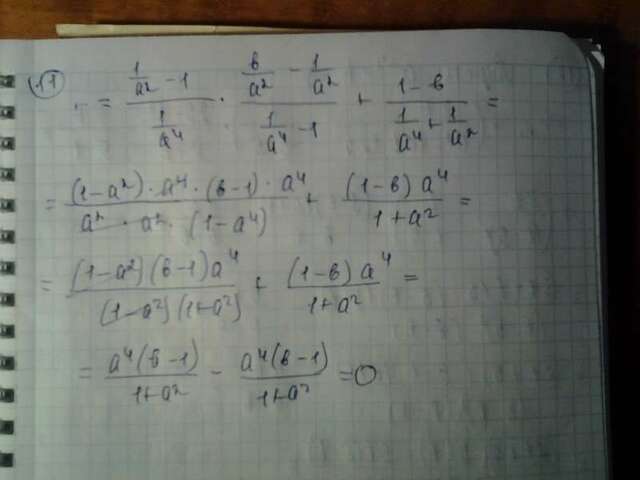 11
... = (1/a² - 1)/(1/a⁴) · (в/a² - 1/a²)/(1/a⁴ - 1) + (1 - в)/(1/a⁴ + 1/a²) =
= ((1-a²)·a⁴·(в-1)·a⁴)/(a²·a²·(1-a⁴)) + ((1-в)a⁴)/(1+a²) =
= ((1-a²)(в-1)a⁴)/((1-a²)(1+a²)) + ((1-в)a⁴)/(1+a²) =
= (a⁴(в-1))/(1+a²) - (a⁴(в-1))/(1+a²) = 0